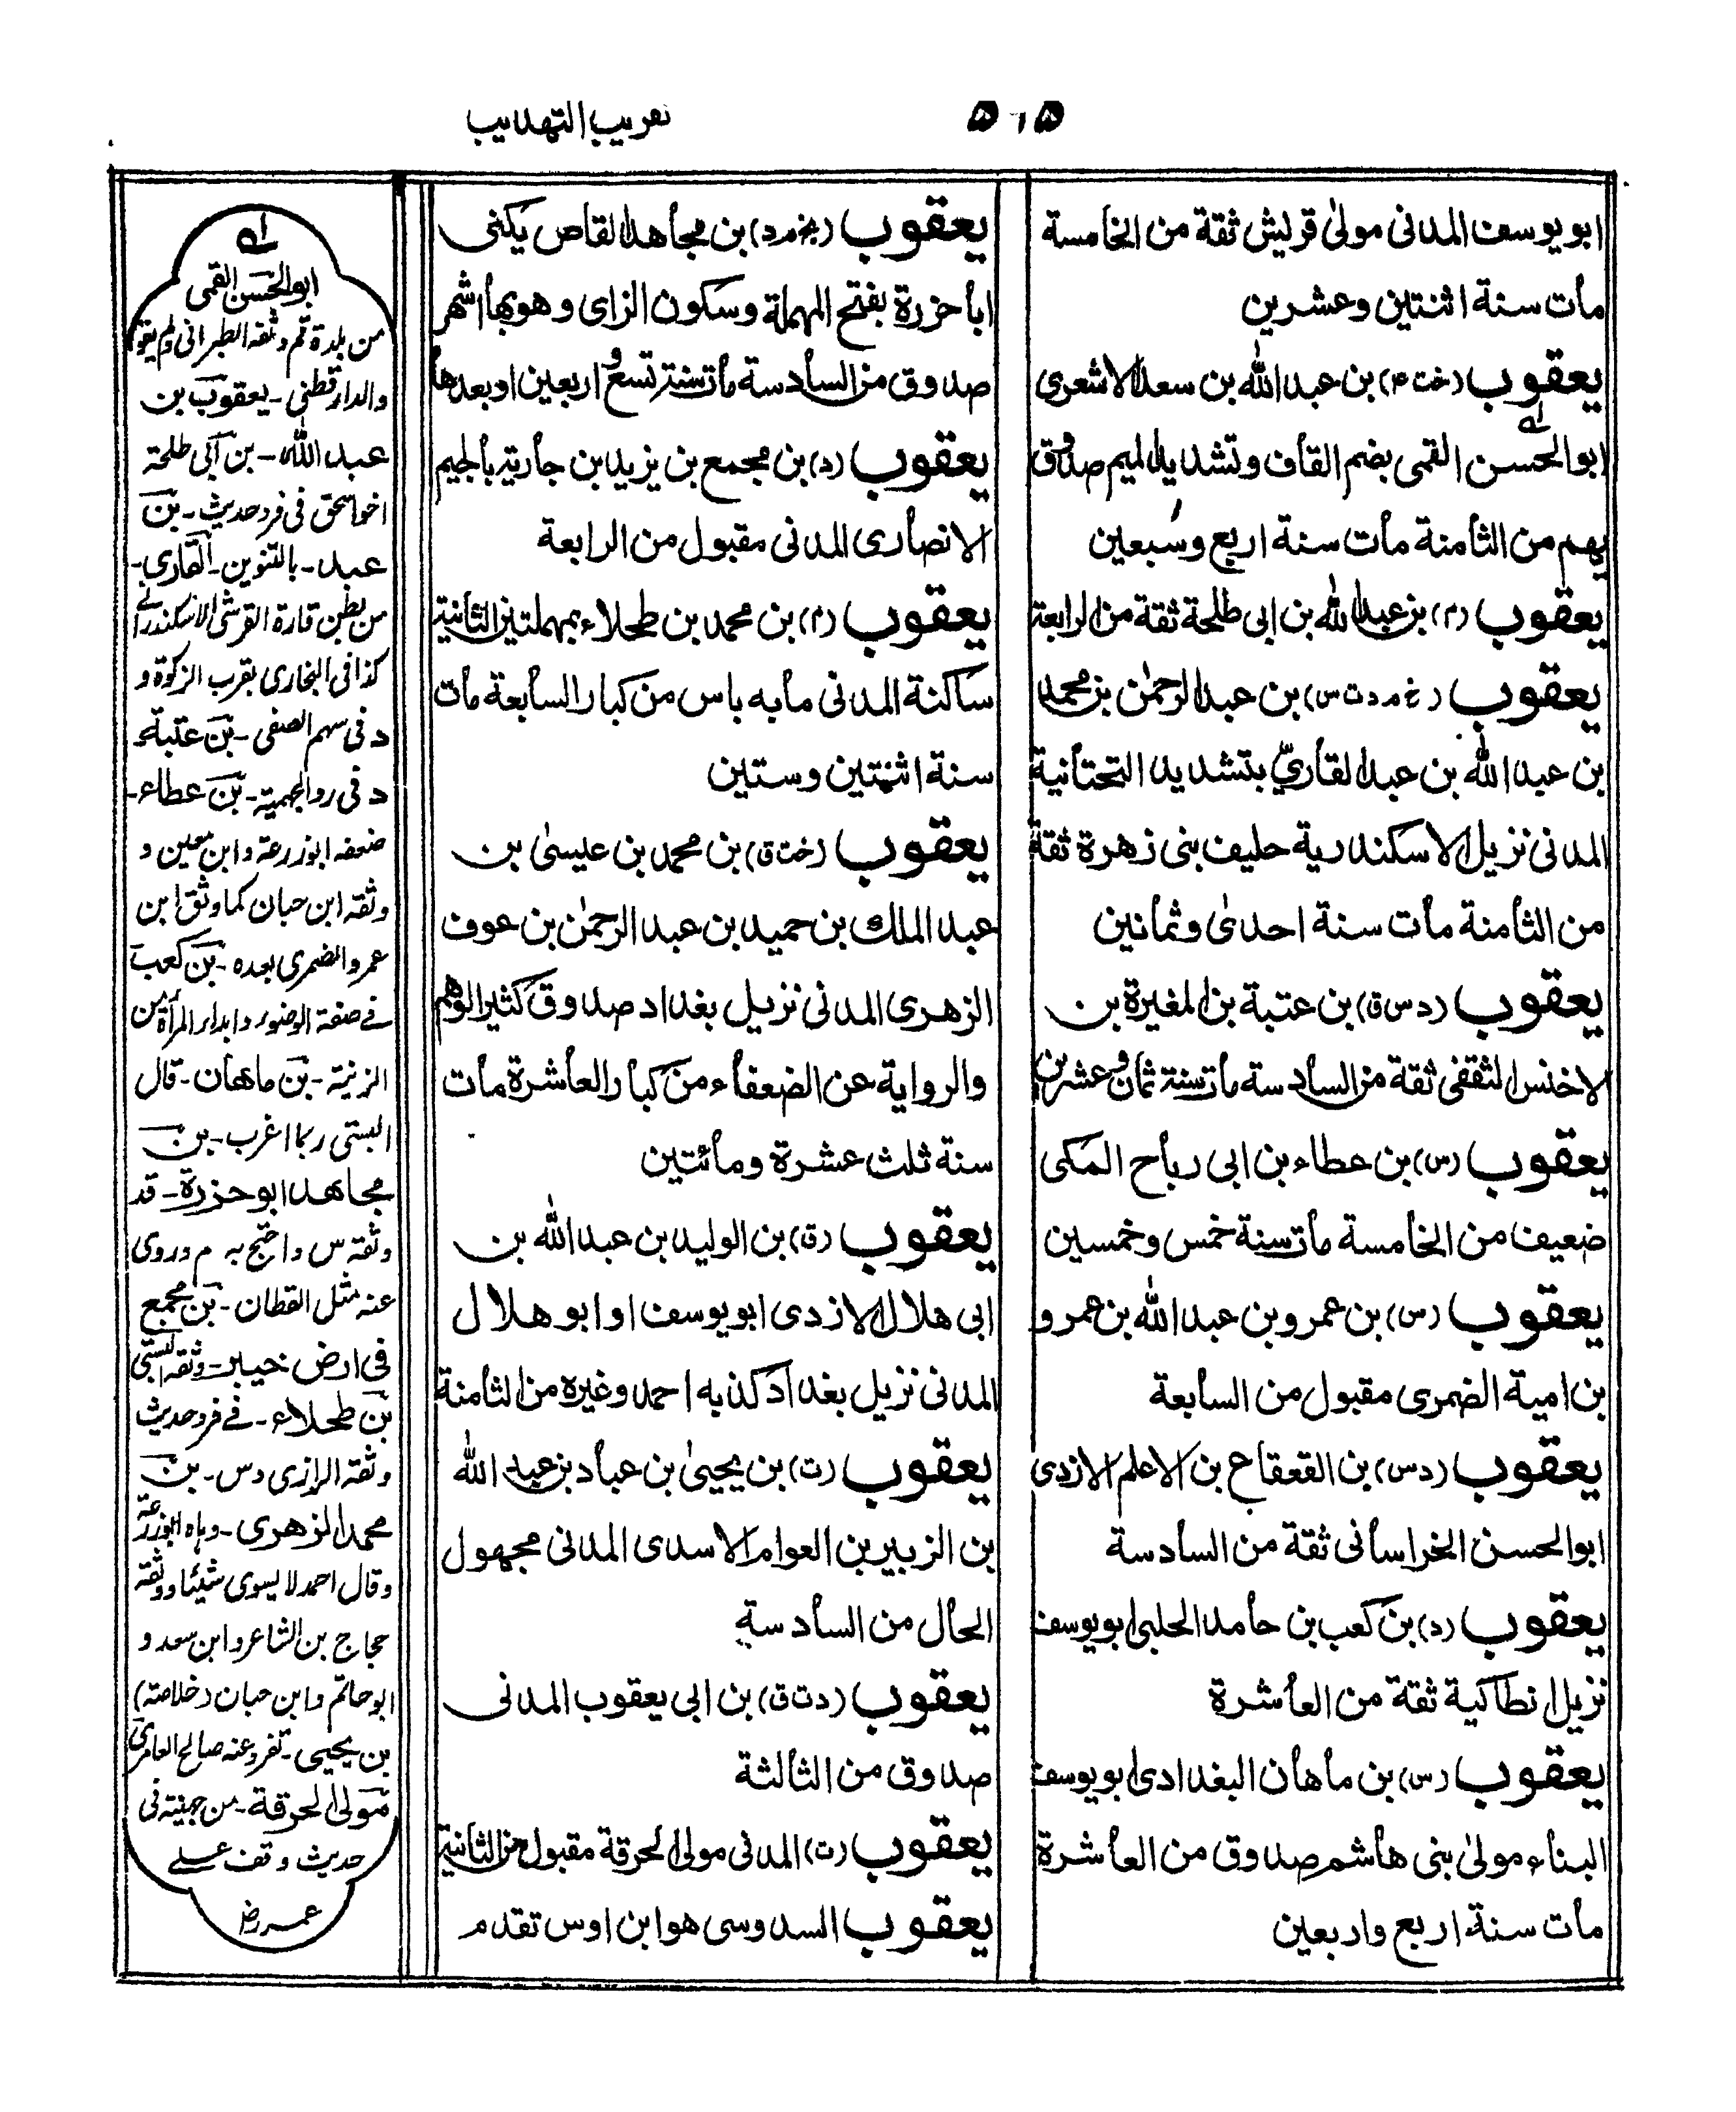 ٥٦٥
تقريب التهذيب
ابو يوسف المدنى مولىٰ قريش ثقة من الخامسة
مات سنة اثنتين وعشرين
يعقوب (خت ٤) بن عبد الله بن سعد الاشعرى
ابو الحسن القمى بضم القاف وتشديد الميم صدوق
يهم من الثامنة مات سنة اربع وسبعين
يعقوب (م) بن عبد الله بن ابى طلحة ثقة من الرابعة
يعقوب (خ م د ت س) بن عبد الرحمٰن بن محمد
بن عبد الله بن عبد القاريّ بتشديد التحتانية
المدنى نزيل الاسكندرية حليف بنى زهرة ثقة
من الثامنة مات سنة احدىٰ وثمانين
يعقوب (د س ق) بن عتبة بن المغيرة بن
الاخنس الثقفى ثقة من السادسة مات سنة ثمان وعشرين
يعقوب (س) بن عطاء بن ابى رباح المكى
ضعيف من الخامسة مات سنة خمس وخمسين
يعقوب (س) بن عمرو بن عبد الله بن عمرو
بن امية الضمرى مقبول من السابعة
يعقوب (د س) بن القعقاع بن الاعلم الازدى
ابو الحسن الخراسانى ثقة من السادسة
يعقوب (د) بن كعب بن حامد الحلبى ابو يوسف
نزيل انطاكية ثقة من العاشرة
يعقوب (س) بن ماهان البغدادى ابو يوسف
البناء مولىٰ بنى هاشم صدوق من العاشرة
مات سنة اربع واربعين
يعقوب (بخ م د) بن مجاهد القاص يكنى
ابا حزرة بفتح المهملة وسكون الزاى وهو بها اشهر
صدوق من السادسة مات سنة تسع واربعين او بعدها
يعقوب (د) بن مجمع بن يزيد بن جارية بالجيم
الانصارى المدنى مقبول من الرابعة
يعقوب (م) بن محمد بن طحلاء بمهملتين الثانية
ساكنة المدنى ما به باس من كبار السابعة مات
سنة اثنتين وستين
يعقوب (خت ق) بن محمد بن عيسىٰ بن
عبد الملك بن حميد بن عبد الرحمٰن بن عوف
الزهرى المدنى نزيل بغداد صدوق كثير الوهم
والرواية عن الضعفاء من كبار العاشرة مات
سنة ثلث عشرة ومائتين
يعقوب (ق) بن الوليد بن عبد الله بن
ابى هلال الازدى ابو يوسف او ابو هلال
المدنى نزيل بغداد كذبه احمد وغيره من الثامنة
يعقوب (ت) بن يحيىٰ بن عباد بن عبد الله
بن الزبير بن العوام الاسدى المدنى مجهول
الحال من السادسة
يعقوب (د ت ق) بن ابى يعقوب المدنى
صدوق من الثالثة
يعقوب (ت) المدنى مولى الحرقة مقبول من الثانية
يعقوب السدوسى هو ابن اوس تقدم
له
ابو الحسن القمى
من بلدة قم وثقه الطبرانى ولم يقوه
والدارقطنى - يعقوب بن
عبد الله - بن ابى طلحة
اخو اسحق فى فرد حديث - بن
عبد - بالتنوين - القارى -
من بطن قارة القرشى الاسكندرانے
كذا فى البخارى بقرب الزكوة و
د فى سهم الصفى - بن عتبة -
د فى رد الجهمية - بن عطاء -
ضعفه ابو زرعة وابن معين و
وثقه ابن حبان كما وثق ابن
عمرو الضمرى بعده - بن كعب
فے صفة الوضوء وابداء المرأة من
الزينة - بن ماهان - قال
البستى ربما اغرب - بن
مجاهد ابو حزرة - قد
وثقه س واحتج به م وروى
عنه مثل القطان - بن مجمع
فى ارض خيبر - وثقه البستى
بن طحلاء - فے فرد حديث
وثقه الرازى وس - بن
محمد الزهرى - وهاه ابو زرعة
وقال احمد لا يسوى شيئا ووثقه
حجاج بن الشاعر وابن سعد و
ابو حاتم وابن حبان (خلاصة)
بن يحيى - تفرد عنه صالح العامرى
مولى الحرقة - من جهينة فى
حديث وقف علے
عمر رض